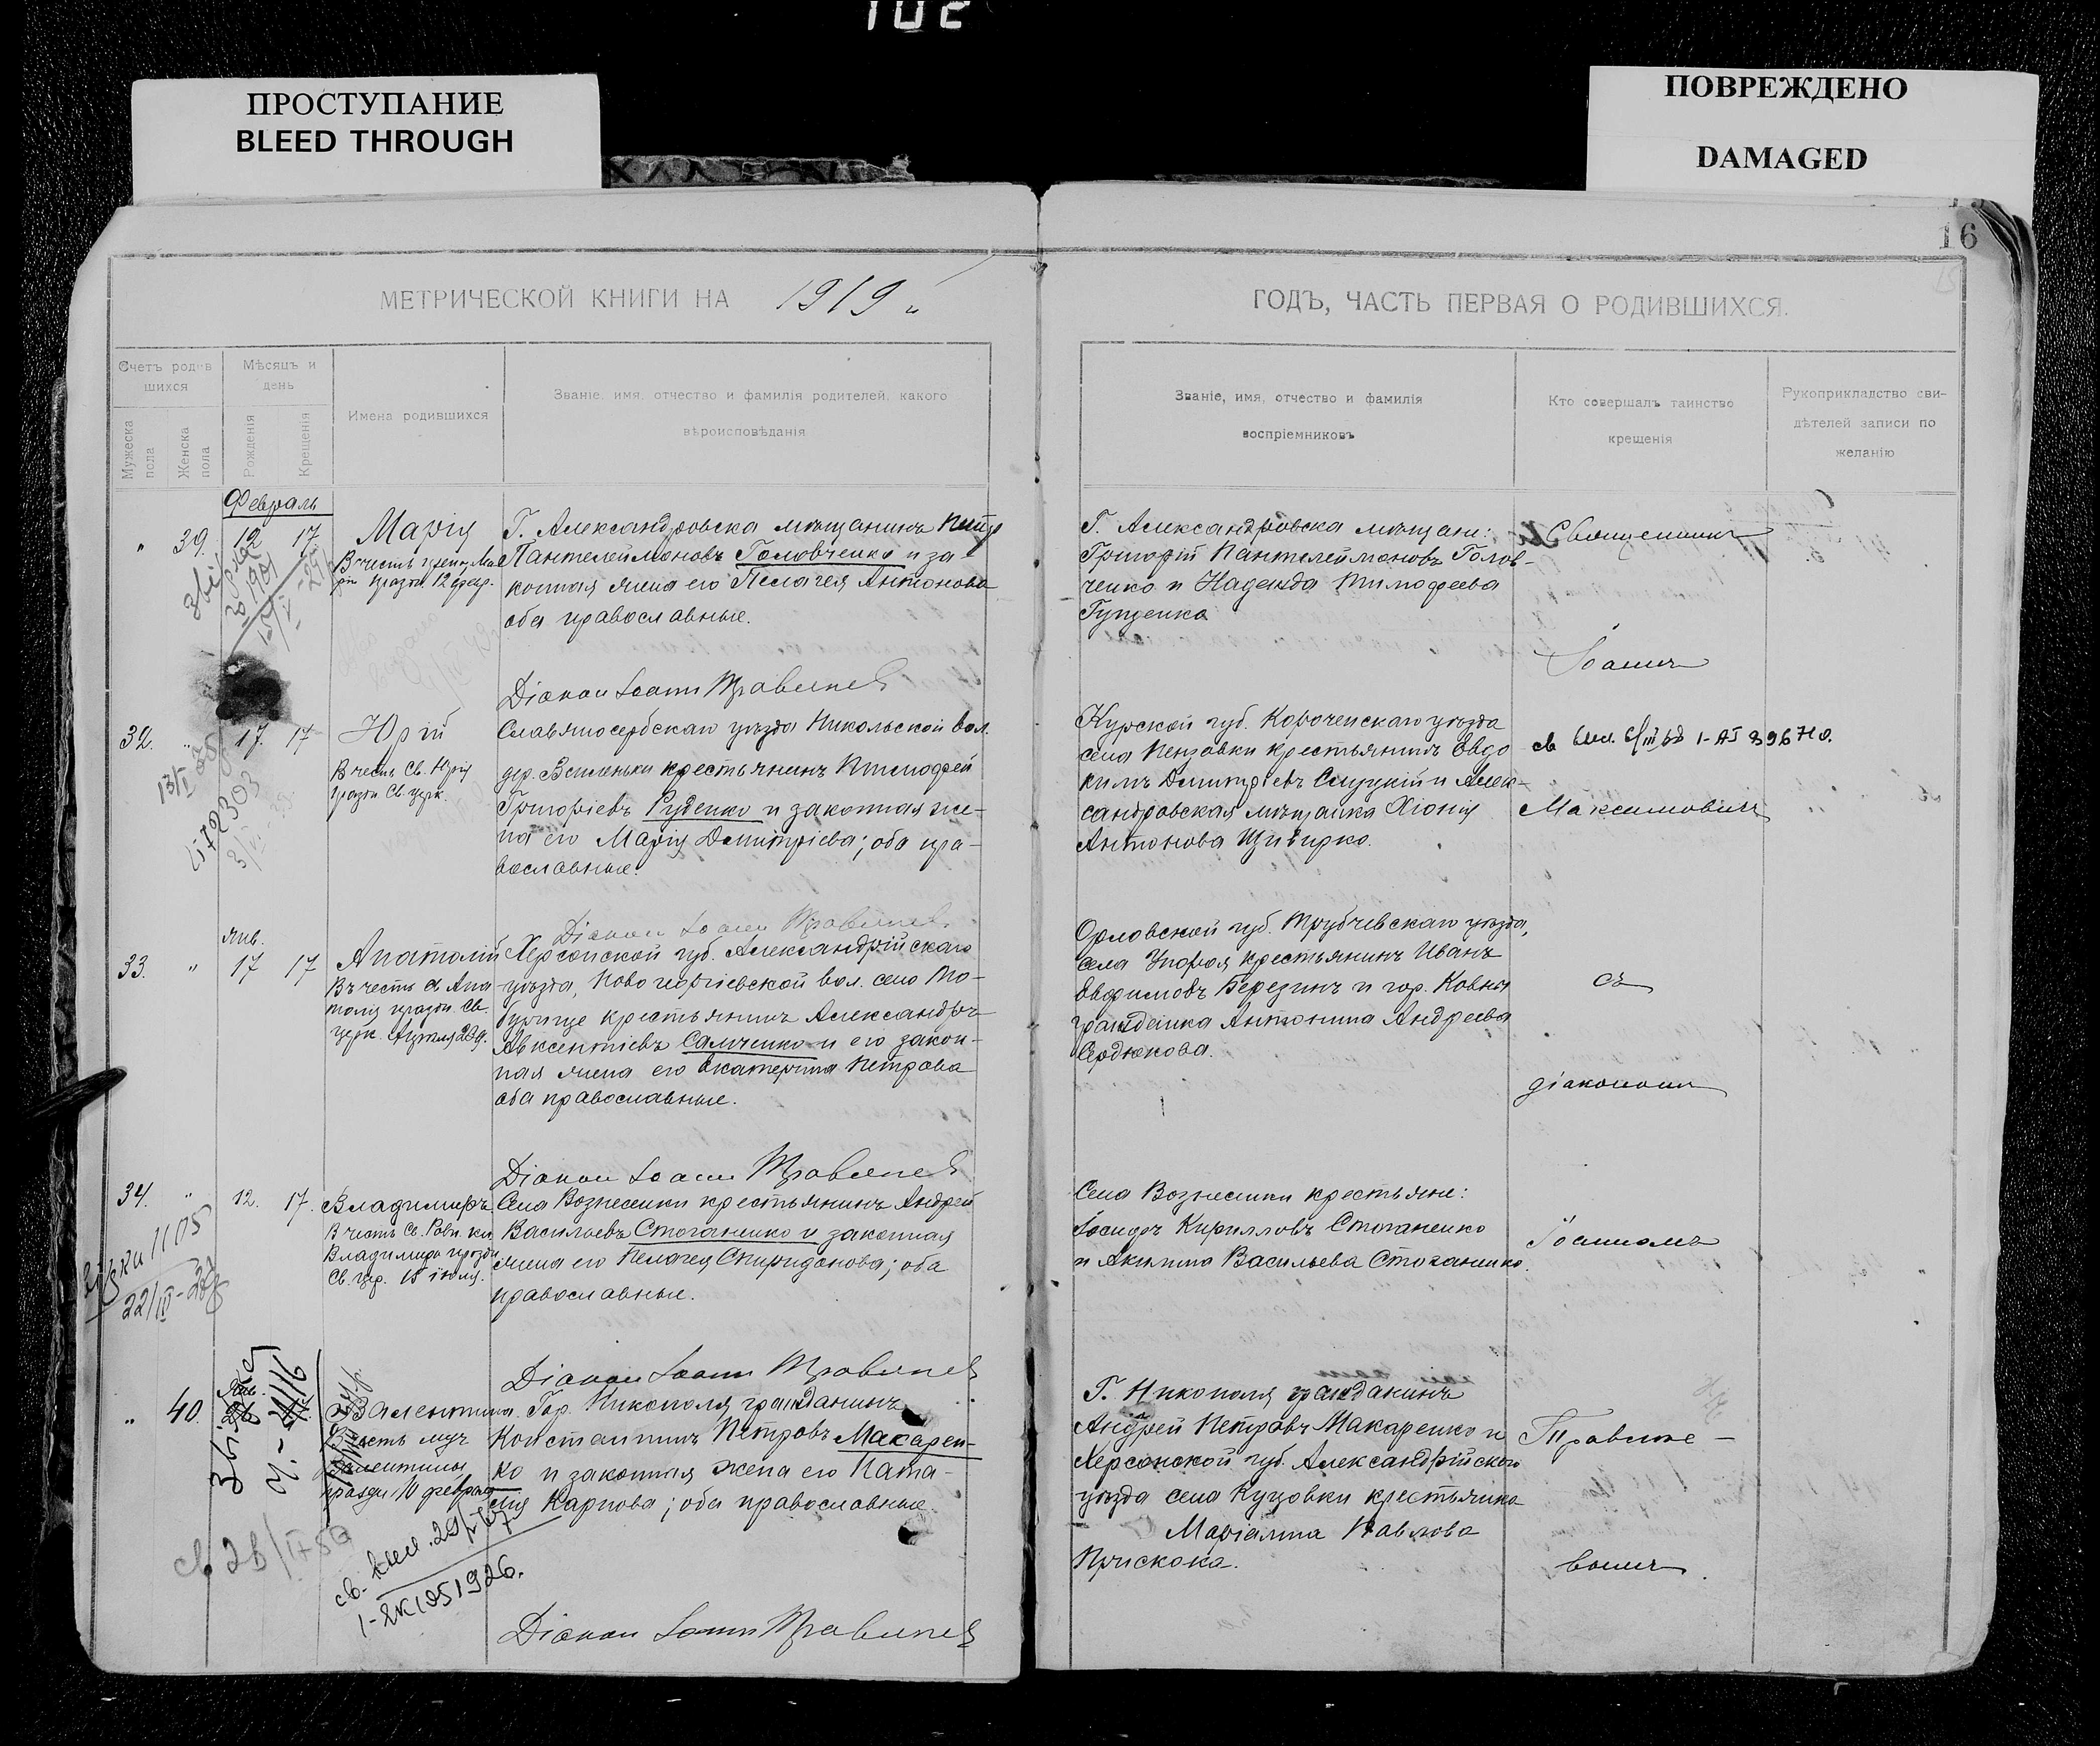 102
ПРОСТУПАНИЕ
BLEED THROUGH
ПОВРЕЖДЕНО
DAMAGED
16
МЕТРИЧЕСКОЙ КНИГИ НА 1919
ГОДЪ, ЧАСТЬ ПЕРВАЯ О РОДИВШИХСЯ.
Счетъ родив
шихся
Мужеска
пола
Женска
пола
Мѣсяцъ и
день
Рожденія
Крещенія
Имена родившихся
Званіе, имя, отчество и фамилія родителей, какого
вѣроисповѣданія
Званіе, имя, отчество и фамилія
воспріемниковъ
Кто совершалъ таинство
крещенія
Рукоприкладство сви-
дѣтелей записи по
желанію
Февраль
" 39. 12 17.
Марія
В честь
празд. 12 февр.
Г. Александровска мѣщанинъ Петр
Пантелеймоновъ Головченко и за
конная жена его Пелагея Антонова
оба православные.
Діакон Іоанн Травинев
Г. Александровска мѣщани:
Григорій Пантелеймоновъ Голов-
ченко и Надежда Тимофеева
Гунченко
Священник
Іоанн
32. " 17. 17
Юрій
В честь Св. Юрія
празд. Св. церк.
Славяносербскаго уѣзда Никольской вол.
дер. Василеньки крестьянинъ Тимофей
Григоріевъ Руденко и законная же-
на его Марія Димитріева; оба пра-
вославные.
Діакон Іоанн Травинев
Курской губ. Корочанскаго уѣзда
села Пензовки крестьянинъ Евдо
кимъ Димитріевъ Слуцкій и Алек-
сандровская мѣщанка Хіонія
Антонова Щивирко.
1-АЗ 896710.
Максимович
13/I
572303
янв.
33. " 17 17
Анатолій
Въ честь св. Ана
толія празд. Св.
церк. Апреля 23 д.
Херсонской губ. Александрійскаго
уѣзда, Новогеоргіевской вол. село Та-
бурище крестьянинъ Александръ
Авксентіевъ Сальченко и его закон-
ная жена его Екатерина Петрова
оба православные.
Діакон Іоанн Травинев
Орловской губ. Трубчевскаго уѣзда,
села Упороя крестьянинъ Иванъ
Евфимовъ Березинъ и гор. Ковны
гражданка Антонина Андреева
Сердюкова.
съ
діаконом
34. " 12. 17.
Владимиръ
В честь Св. Равн. кн.
Владимира празд.
Св. цер. 15 іюля.
Села Вознесенки крестьянинъ Андрей
Васильевъ Стоганенко и законная
жена его Пелагея Спиридонова; оба
православные.
Діакон Іоанн Травинев
Села Вознесенки крестьяне:
Іосифъ Кирилловъ Стоганенко
и Акилина Васильева Стоганенко.
Іоанномъ
1105
22/IV-
" 40.
Валентина.
В честь муч
Валентины
празд. 10 февраля
Гор. Никополя гражданинъ
Константинъ Петровъ Макарен-
ко и законная жена его Ната-
лія Карпова; оба православные.
Діакон Іоанн Травинев
Г. Никополя гражданинъ
Андрей Петровъ Макаренко и
Херсонской губ. Александрійскаго
уѣзда села Куцовки крестьянка
Маріамна Павлова
Прискока.
Травине-
вым.
1-ЯК 1051926.